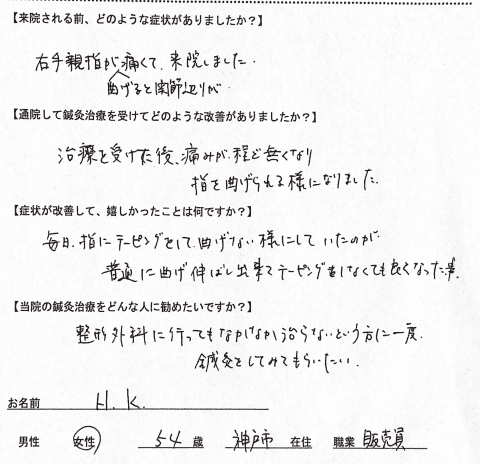 【来院される前、どのような症状がありましたか？】
右手親指が痛くて、来院しました.
曲げると関節辺りが
【通院して鍼灸治療を受けてどのような改善がありましたか？】
治療を受けた後、痛みが、程ど無くなり
指を曲げられる様になりました.
【症状が改善して、嬉しかったことは何ですか？】
毎日、指にテーピングをして、曲げない様にしていたのが
普通に曲げ伸ばし出来てテーピングをしなくても良くなった事.
【当院の鍼灸治療をどんな人に勧めたいですか？】
整形外科に行ってもなかなか治らないという方に一度.
鍼灸をしてみてもらいたい.
お名前 H.K.
男性 女性 54 歳 神戸市 在住 職業 販売員